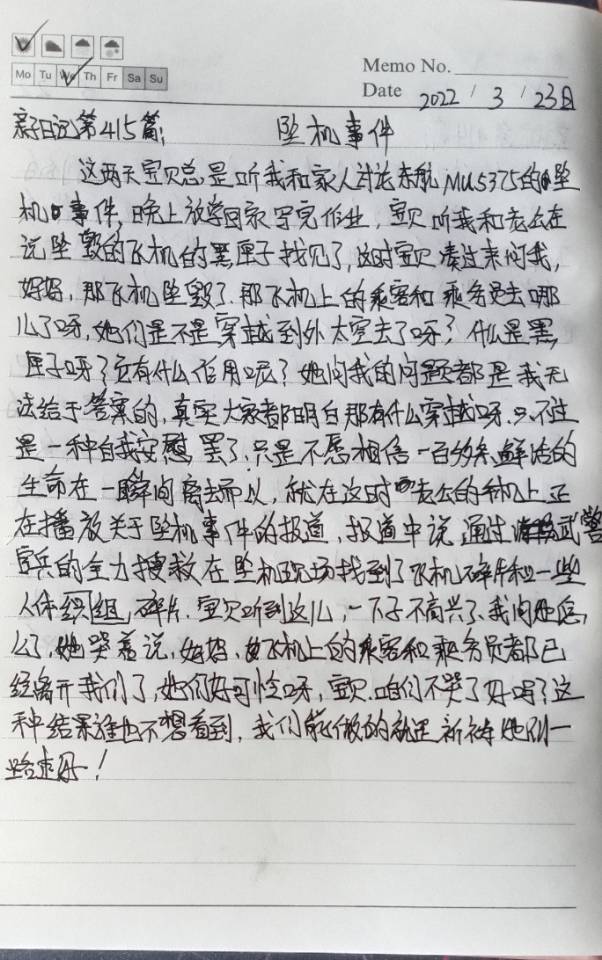 Mo Tu We Th Fr Sa Su
Memo No.
Date 2022 / 3 / 23日
亲子日记第415篇: 坠机事件
这两天宝贝总是听我和家人讨论东航MU5375的坠
机事件,晚上放学回家写完作业,宝贝听我和老公在
说坠毁的飞机的黑匣子找见了,这时宝贝凑过来问我,
妈妈,那飞机坠毁了.那飞机上的乘客和乘务员去哪
儿了呀,她们是不是穿越到外太空去了呀?什么是黑
匣子呀?它有什么作用呢?她问我的问题都是我无
法给于答案的,其实大家都明白那有什么穿越呀.只不过
是一种自我安慰罢了.只是不愿相信一百多条鲜活的
生命在一瞬间离去而以,就在这时老公的手机上正
在播放关于坠机事件的报道,报道中说通过武警
官兵的全力搜救在坠机现场找到了飞机碎片和一些
人体织组碎片.宝贝听到这儿,一下子不高兴了.我问她怎
么了,她哭着说,妈妈,飞机上的乘客和乘务员都已
经离开我们了,她们好可怜呀,宝贝.咱们不哭了好吗?这
种结果谁也不想看到,我们能做的就是祈祷她们一
路走好!